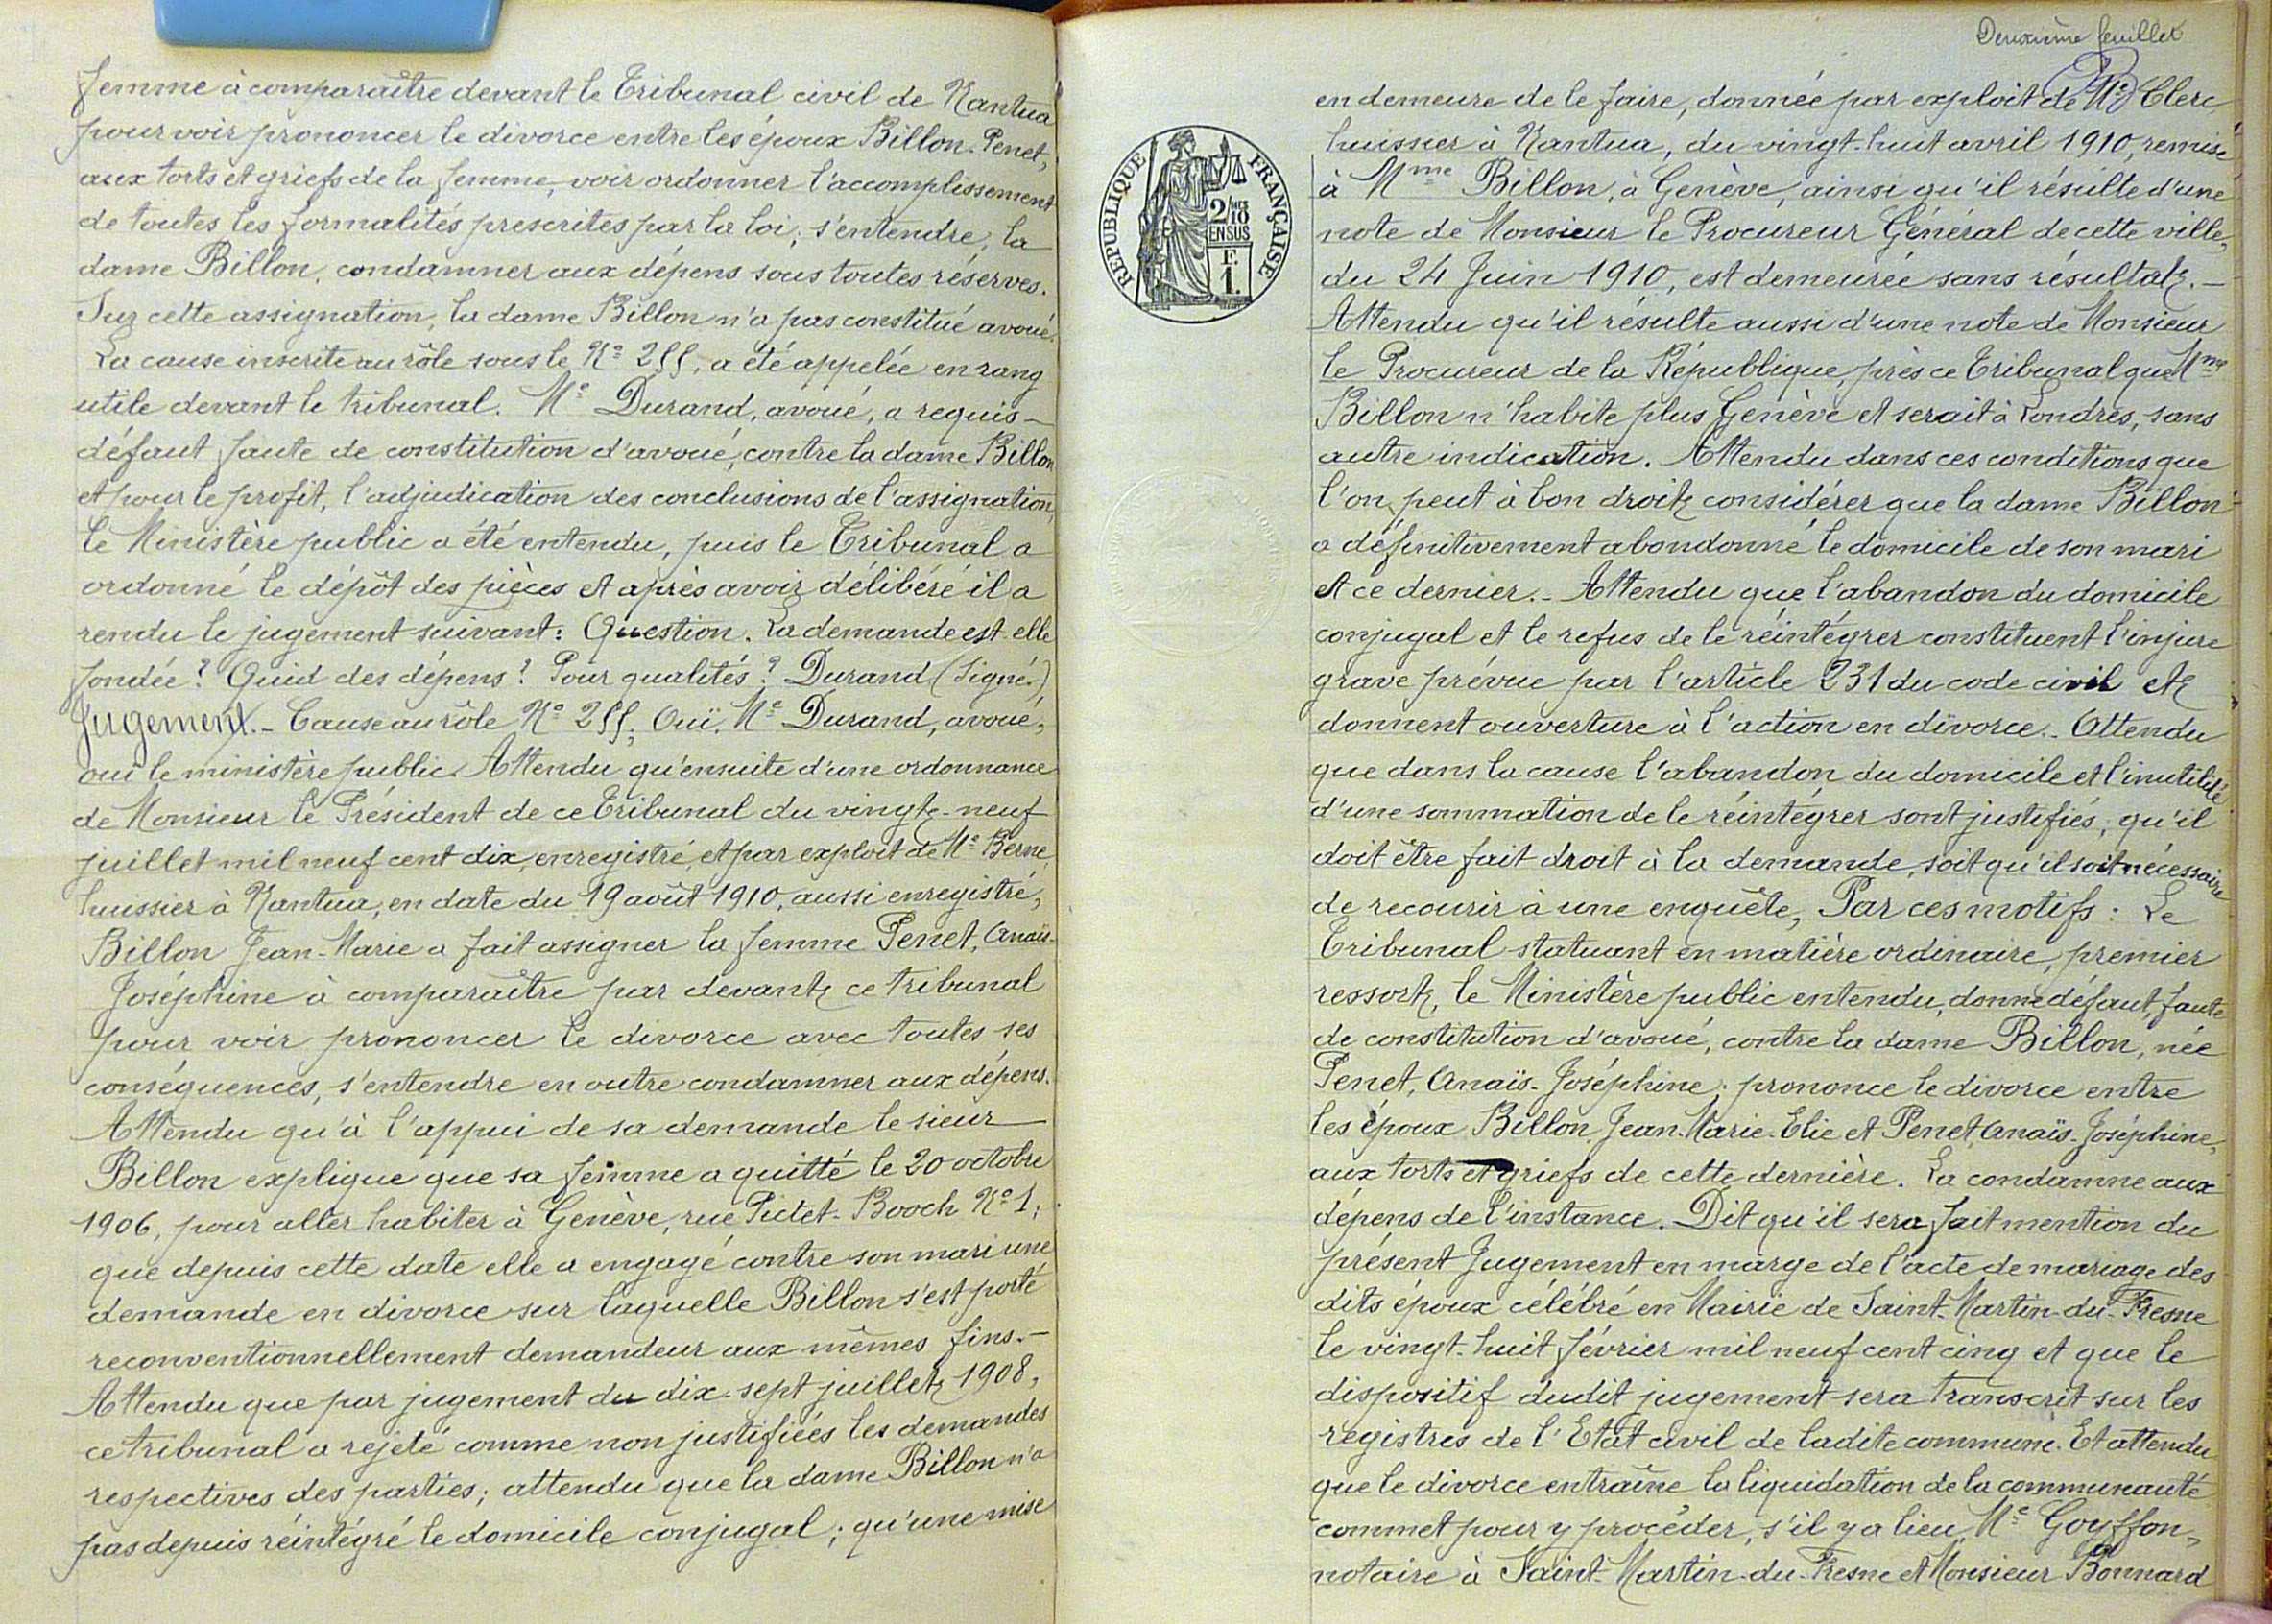 femme à comparaître devant le Tribunal civil de Nantua
pour voir prononcer le divorce entre les époux Billon-Penet,
aux torts et griefs de la femme, voir ordonner l'accomplissement
de toutes les formalités prescrites par la loi; s'entendre, la
dame Billon, condamner aux dépens sous toutes réserves.
Sur cette assignation, la dame Billon n'a pas constitué avoué.
La cause inscrite au rôle sous le Nº 255, a été appelée en rang
utile devant le tribunal. Me Durand, avoué, a requis
défaut faute de constitution d'avoué, contre la dame Billon
et pour le profit, l'adjudication des conclusions de l'assignation,
le Ministère public a été entendu, puis le Tribunal a
ordonné le dépôt des pièces et après avoir délibéré il a
rendu le jugement suivant: Question. La demande est-elle
fondée? Quid des dépens? Pour qualités? Durand (Signé.)
Jugement.- Cause au rôle Nº 255; Ouï. Me Durand, avoué,
oui le ministère public. Attendu qu'ensuite d'une ordonnance
de Monsieur le Président de ce Tribunal du vingt-neuf
juillet mil neuf cent dix, enregistré, et par exploit de Me Berne
huissier à Nantua, en date du 19 août 1910, aussi enregistré,
Billon Jean-Marie a fait assigner la femme Penet, Anaïs-
Joséphine à comparaître par devant ce tribunal
pour voir prononcer le divorce avec toutes ses
conséquences, s'entendre en outre condamner aux dépens.
Attendu qu'à l'appui de sa demande le sieur
Billon explique que sa femme a quitté le 20 octobre
1906, pour aller habiter à Genève, rue Pictet-Booch Nº 1;
que depuis cette date elle a engagé contre son mari une
demande en divorce sur laquelle Billon s'est porté
reconventionnellement demandeur aux mêmes fins.-
Attendu que par jugement du dix-sept juillet 1908,
ce tribunal a rejeté comme non justifiées les demandes
respectives des parties; attendu que la dame Billon n'a
pas depuis réintégré le domicile conjugal; qu'une mise
Deuxième feuillet
en demeure de le faire, donnée par exploit de Me Clerc
huissier à Nantua, du vingt-huit avril 1910, remise
à Mme Billon, à Genève, ainsi qu'il résulte d'une
note de Monsieur le Procureur Général de cette ville,
du 24 Juin 1910, est demeurée sans résultat.-
Attendu qu'il résulte aussi d'une note de Monsieur
le Procureur de la République, près ce Tribunal que Mme
Billon n'habite plus Genève et serait à Londres, sans
autre indication. Attendu dans ces conditions que
l'on peut à bon droit considérer que la dame Billon
a définitivement abondonné le domicile de son mari
et ce dernier.- Attendu que l'abandon du domicile
conjugal et le refus de le réintégrer constituent l'injure
grave prévue par l'article 231 du code civil et
donnent ouverture à l'action en divorce.- Attendu
que dans la cause l'abandon du domicile et l'inutilité
d'une sommation de le réintégrer sont justifiés; qu'il
doit être fait droit à la demande, soit qu'il soit nécessaire
de recourir à une enquête, Par ces motifs: Le
Tribunal statuant en matière ordinaire, premier
ressort, le Ministère public entendu, donne défaut, faute
de constitution d'avoué, contre la dame Billon, née
Penet, Anaïs-Joséphine; prononce le divorce entre
les époux Billon Jean-Marie-Elie et Penet, Anaïs-Joséphine,
aux torts et griefs de cette dernière. La condamne aux
dépens de l'instance. Dit qu'il sera fait mention du
présent Jugement en marge de l'acte de mariage des
dits époux célébré en Mairie de Saint-Martin-du-Fresne
le vingt-huit février mil neuf cent cinq et que le
dispositif dudit jugement sera transcrit sur les
registres de l'Etat civil de ladite commune. Et attendu
que le divorce entraîne la liquidation de la communauté
commet pour y procéder, s'il y a lieu, Me Goyffon,
notaire à Saint-Martin-du-Fresne et Monsieur Bonnard
RÉPUBLIQUE FRANÇAISE
2/10
EN SUS
F.
1.